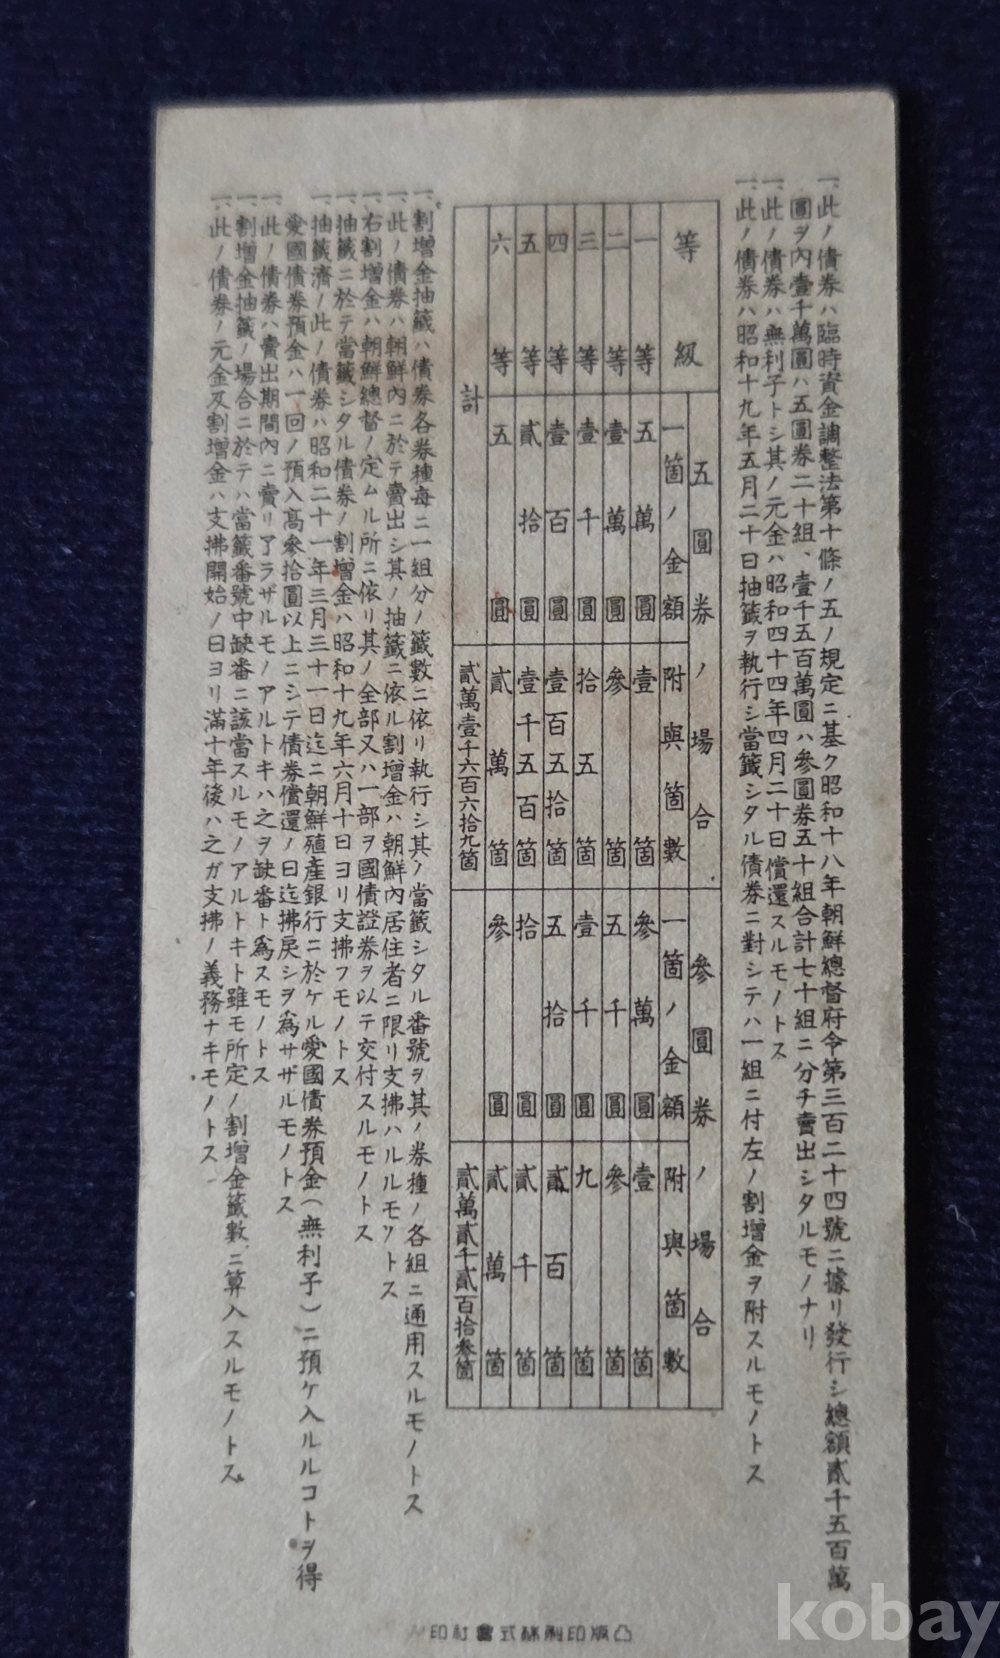 一、此ノ債券ハ臨時資金調整法第十條ノ五ノ規定ニ基ク昭和十八年朝鮮總督府令第三百二十四號ニ據リ發行シ總額貳千五百萬
圓ヲ內壹千萬圓ハ五圓券二十組、壹千五百萬圓ハ參圓券五十組合計七十組ニ分チ賣出シタルモノナリ
一、此ノ債券ハ無利子トシ其ノ元金ハ昭和四十四年四月二十日償還スルモノトス
一、此ノ債券ハ昭和十九年五月二十日抽籤ヲ執行シ當籤シタル債券ニ對シテハ一組ニ付左ノ割增金ヲ附スルモノトス
等級 五圓券ノ場合 參圓券ノ場合
一箇ノ金額 附與箇數 一箇ノ金額 附與箇數
一等 五萬圓 壹箇 參萬圓 壹箇
二等 壹萬圓 參箇 五千圓 參箇
三等 壹千圓 拾五箇 壹千圓 九箇
四等 壹百圓 壹百五拾箇 五拾圓 貳百箇
五等 貳拾圓 壹千五百箇 拾圓 貳千箇
六等 五圓 貳萬箇 參圓 貳萬箇
計 貳萬壹千六百六拾九箇 貳萬貳千貳百拾參箇
一、割增金抽籤ハ債券各券種每ニ一組分ノ籤數ニ依リ執行シ其ノ當籤シタル番號ヲ其ノ券種ノ各組ニ通用スルモノトス
一、此ノ債券ハ朝鮮內ニ於テ賣出シ其ノ抽籤ニ依ル割增金ハ朝鮮內居住者ニ限リ支拂ハルルモノトス
一、右割增金ハ朝鮮總督ノ定ムル所ニ依リ其ノ全部又ハ一部ヲ國債證券ヲ以テ交付スルモノトス
一、抽籤ニ於テ當籤シタル債券ノ割增金ハ昭和十九年六月十日ヨリ支拂フモノトス
一、抽籤濟ノ此ノ債券ハ昭和二十一年三月三十一日迄ニ朝鮮殖產銀行ニ於ケル愛國債券預金(無利子)ニ預ケ入ルルコトヲ得
愛國債券預金ハ一回ノ預入高參拾圓以上ニシテ債券償還ノ日迄拂戾シヲ爲サザルモノトス
一、此ノ債券ハ賣出期間內ニ賣リ了ラザルモノアルトキハ之ヲ缺番ト爲スモノトス
一、割增金抽籤ノ場合ニ於テハ當籤番號中缺番ニ該當スルモノアルトキト雖モ所定ノ割增金籤數ニ算入スルモノトス
一、此ノ債券ノ元金及割增金ハ支拂開始ノ日ヨリ滿十年後ハ之ガ支拂ノ義務ナキモノトス
凸版印刷株式會社印
kobay